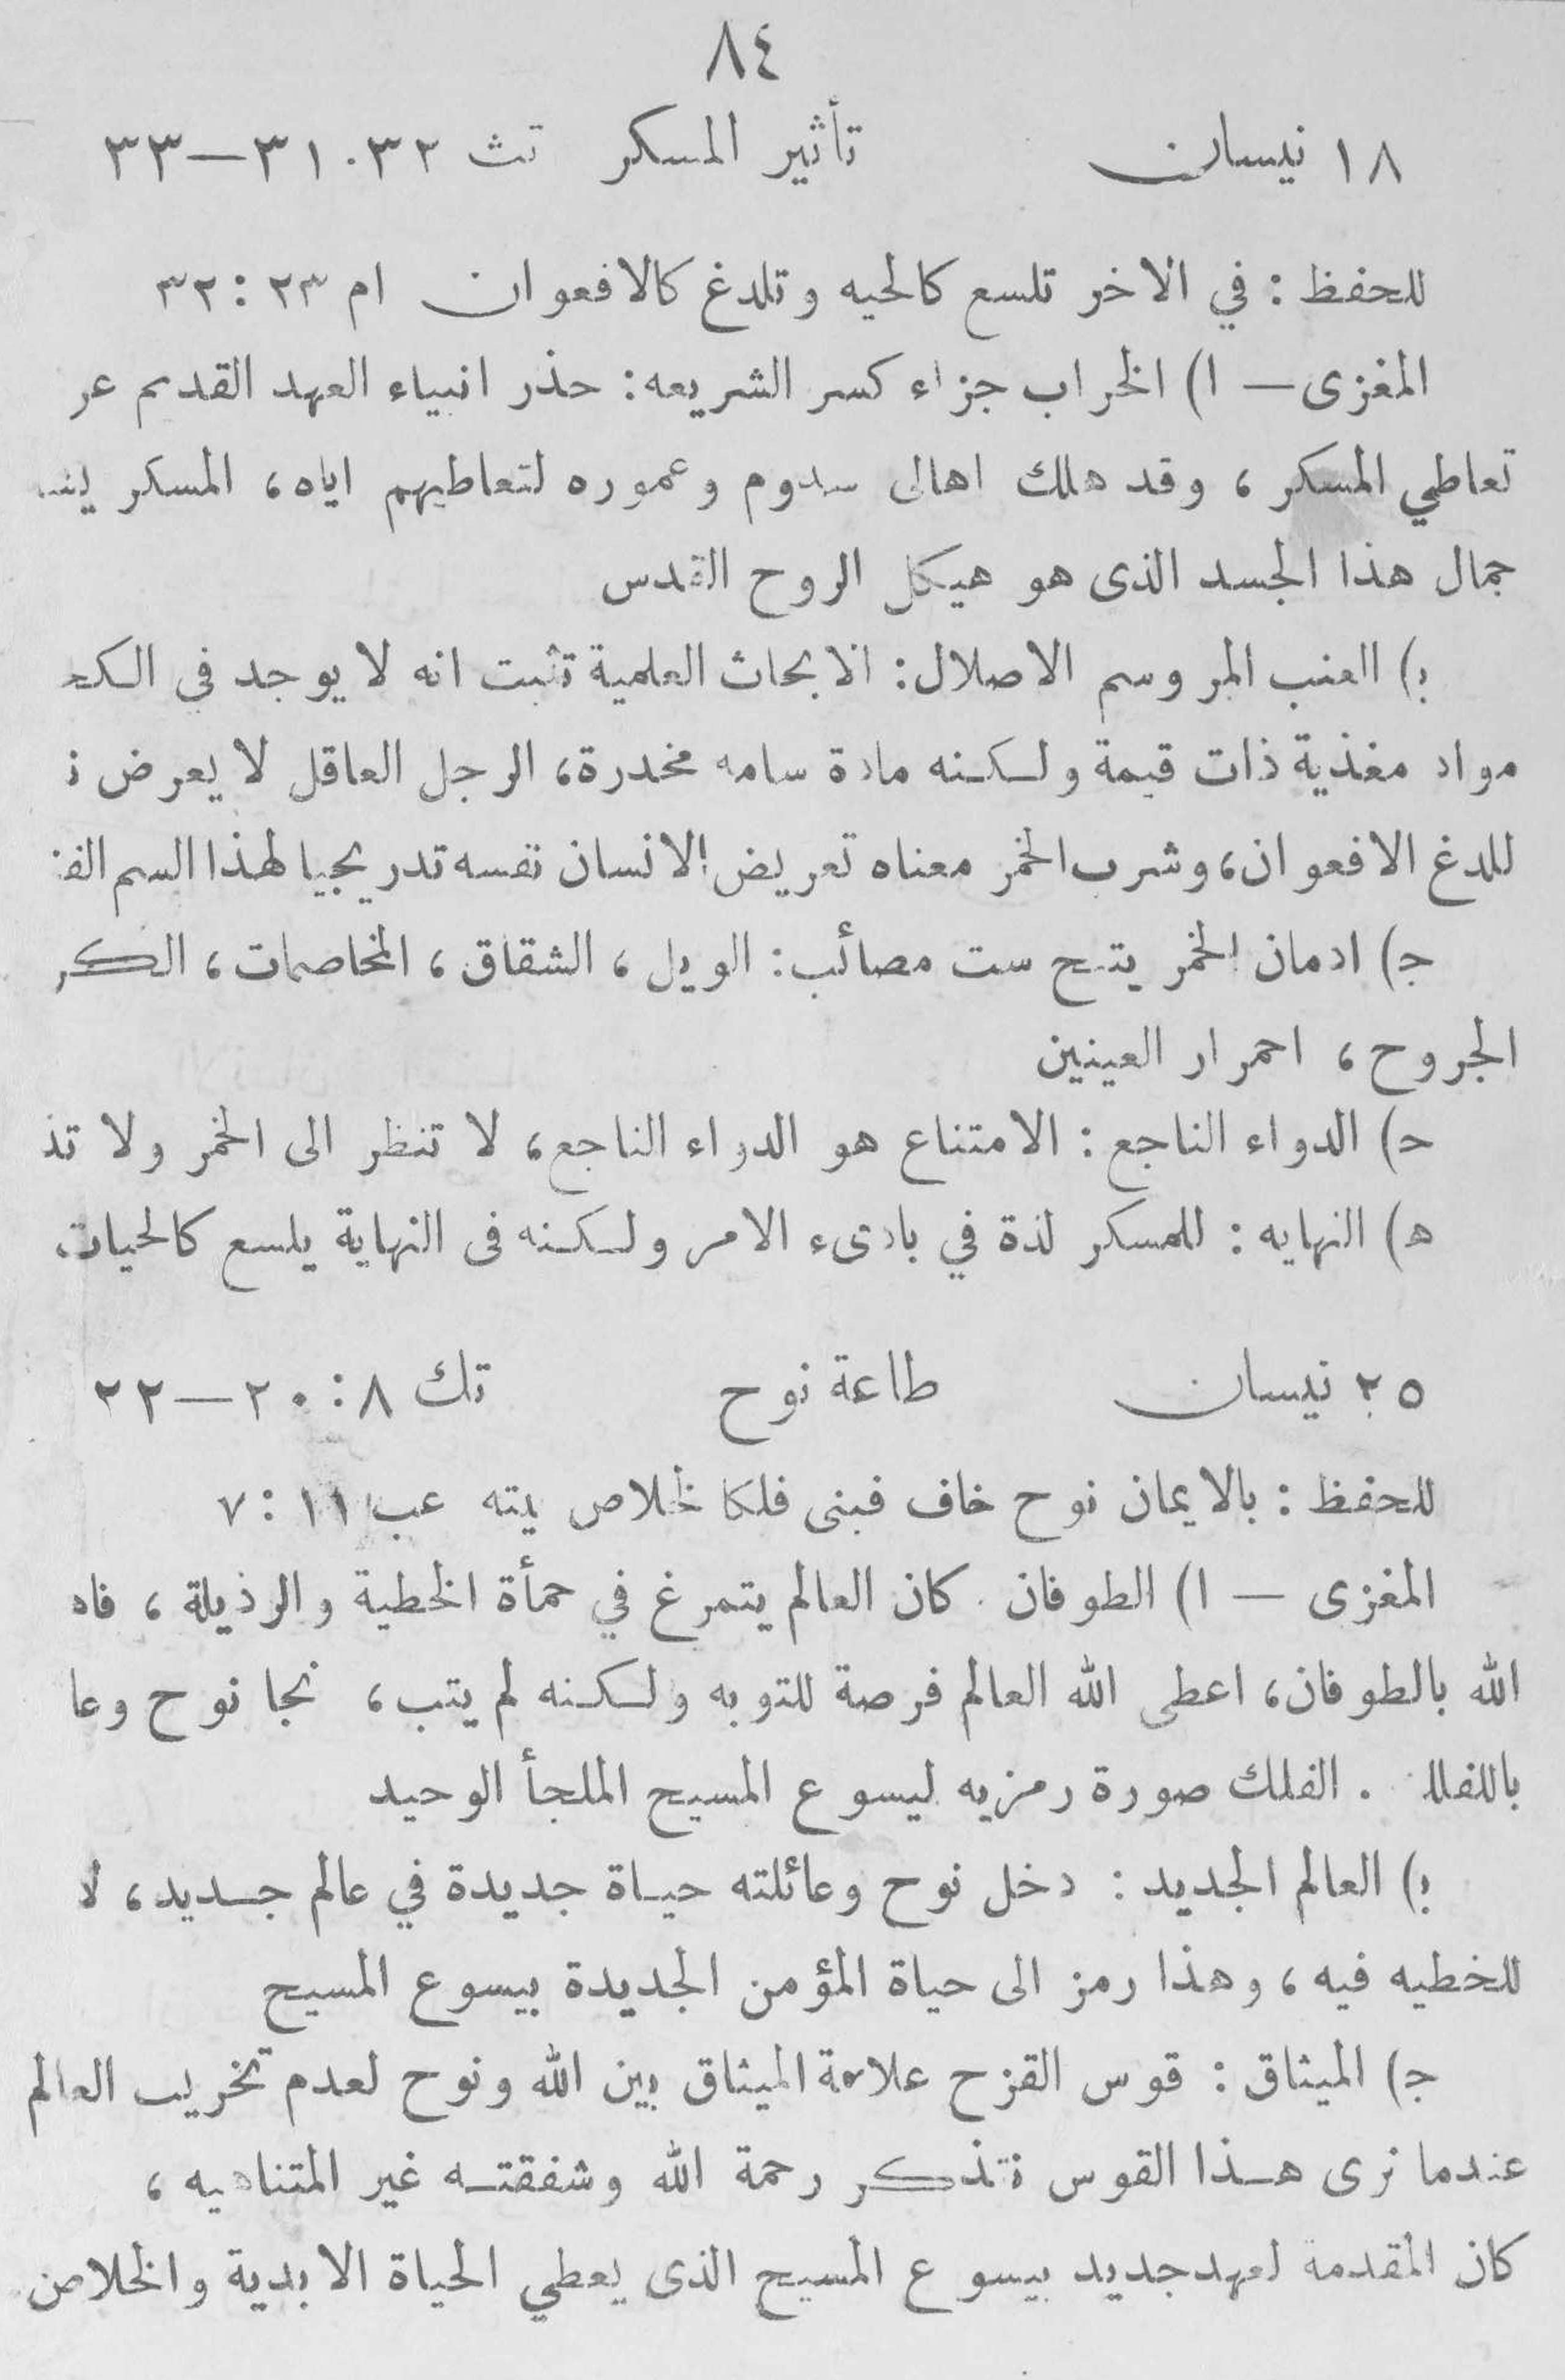 ٨٤
١٨ نيسان تأثير المسكر تث ٣٢.٣١—٣٣
للحفظ : في الاخر تلسع كالحيه وتلدغ كالافعوان ام ٢٣ : ٣٢
المغزى — ا) الخراب جزاء كسر الشريعه: حذر انبياء العهد القديم
تعاطي المسكر ، وقد هلك اهالى سدوم وعموره لتعاطيهم اياه ، المسكر
جمال هذا الجسد الذى هو هيكل الروح القدس
ب) العنب المر وسم الاصلال: الابحاث العلمية تثبت انه لا يوجد فى
مواد مغذية ذات قيمة ولكنه مادة سامه مخدرة ، الرجل العاقل لا يعرض
للدغ الافعوان ، وشرب الخمر معناه تعريض الانسان نفسه تدريجيا لهذا السم
ج) ادمان الخمر يتح ست مصائب: الويل ، الشقاق ، المخاصمات ، الكر
الجروح ، احمرار العينين
د) الدواء الناجع : الامتناع هو الدواء الناجع ، لا تنظر الى الخمر ولا
ه) النهايه : للمسكر لذة في بادىء الامر ولكنه فى النهاية يلسع كالحيات
٢٥ نيسان طاعة نوح تك ٨ : ٢٠—٢٢
للحفظ : بالايمان نوح خاف فبنى فلكا لخلاص بيته عب ١١ : ٧
المغزى — ا) الطوفان . كان العالم يتمرغ في حمأة الخطية والرذيلة ،
الله بالطوفان ، اعطى الله العالم فرصة للتوبه ولكنه لم يتب ، نجا نوح وعا
. الفلك صورة رمزيه ليسوع المسيح الملجأ الوحيد
ب) العالم الجديد : دخل نوح وعائلته حياة جديدة في عالم جديد ، لا
للخطيه فيه ، وهذا رمز الى حياة المؤمن الجديدة بيسوع المسيح
ج) الميثاق : قوس القزح علامة الميثاق بين الله ونوح لعدم تخريب العالم
عندما نرى هذا القوس نتذكر رحمة الله وشفقته غير المتناهيه ،
كان المقدمة لعهد جديد بيسوع المسيح الذى يعطي الحياة الابدية والخلاص